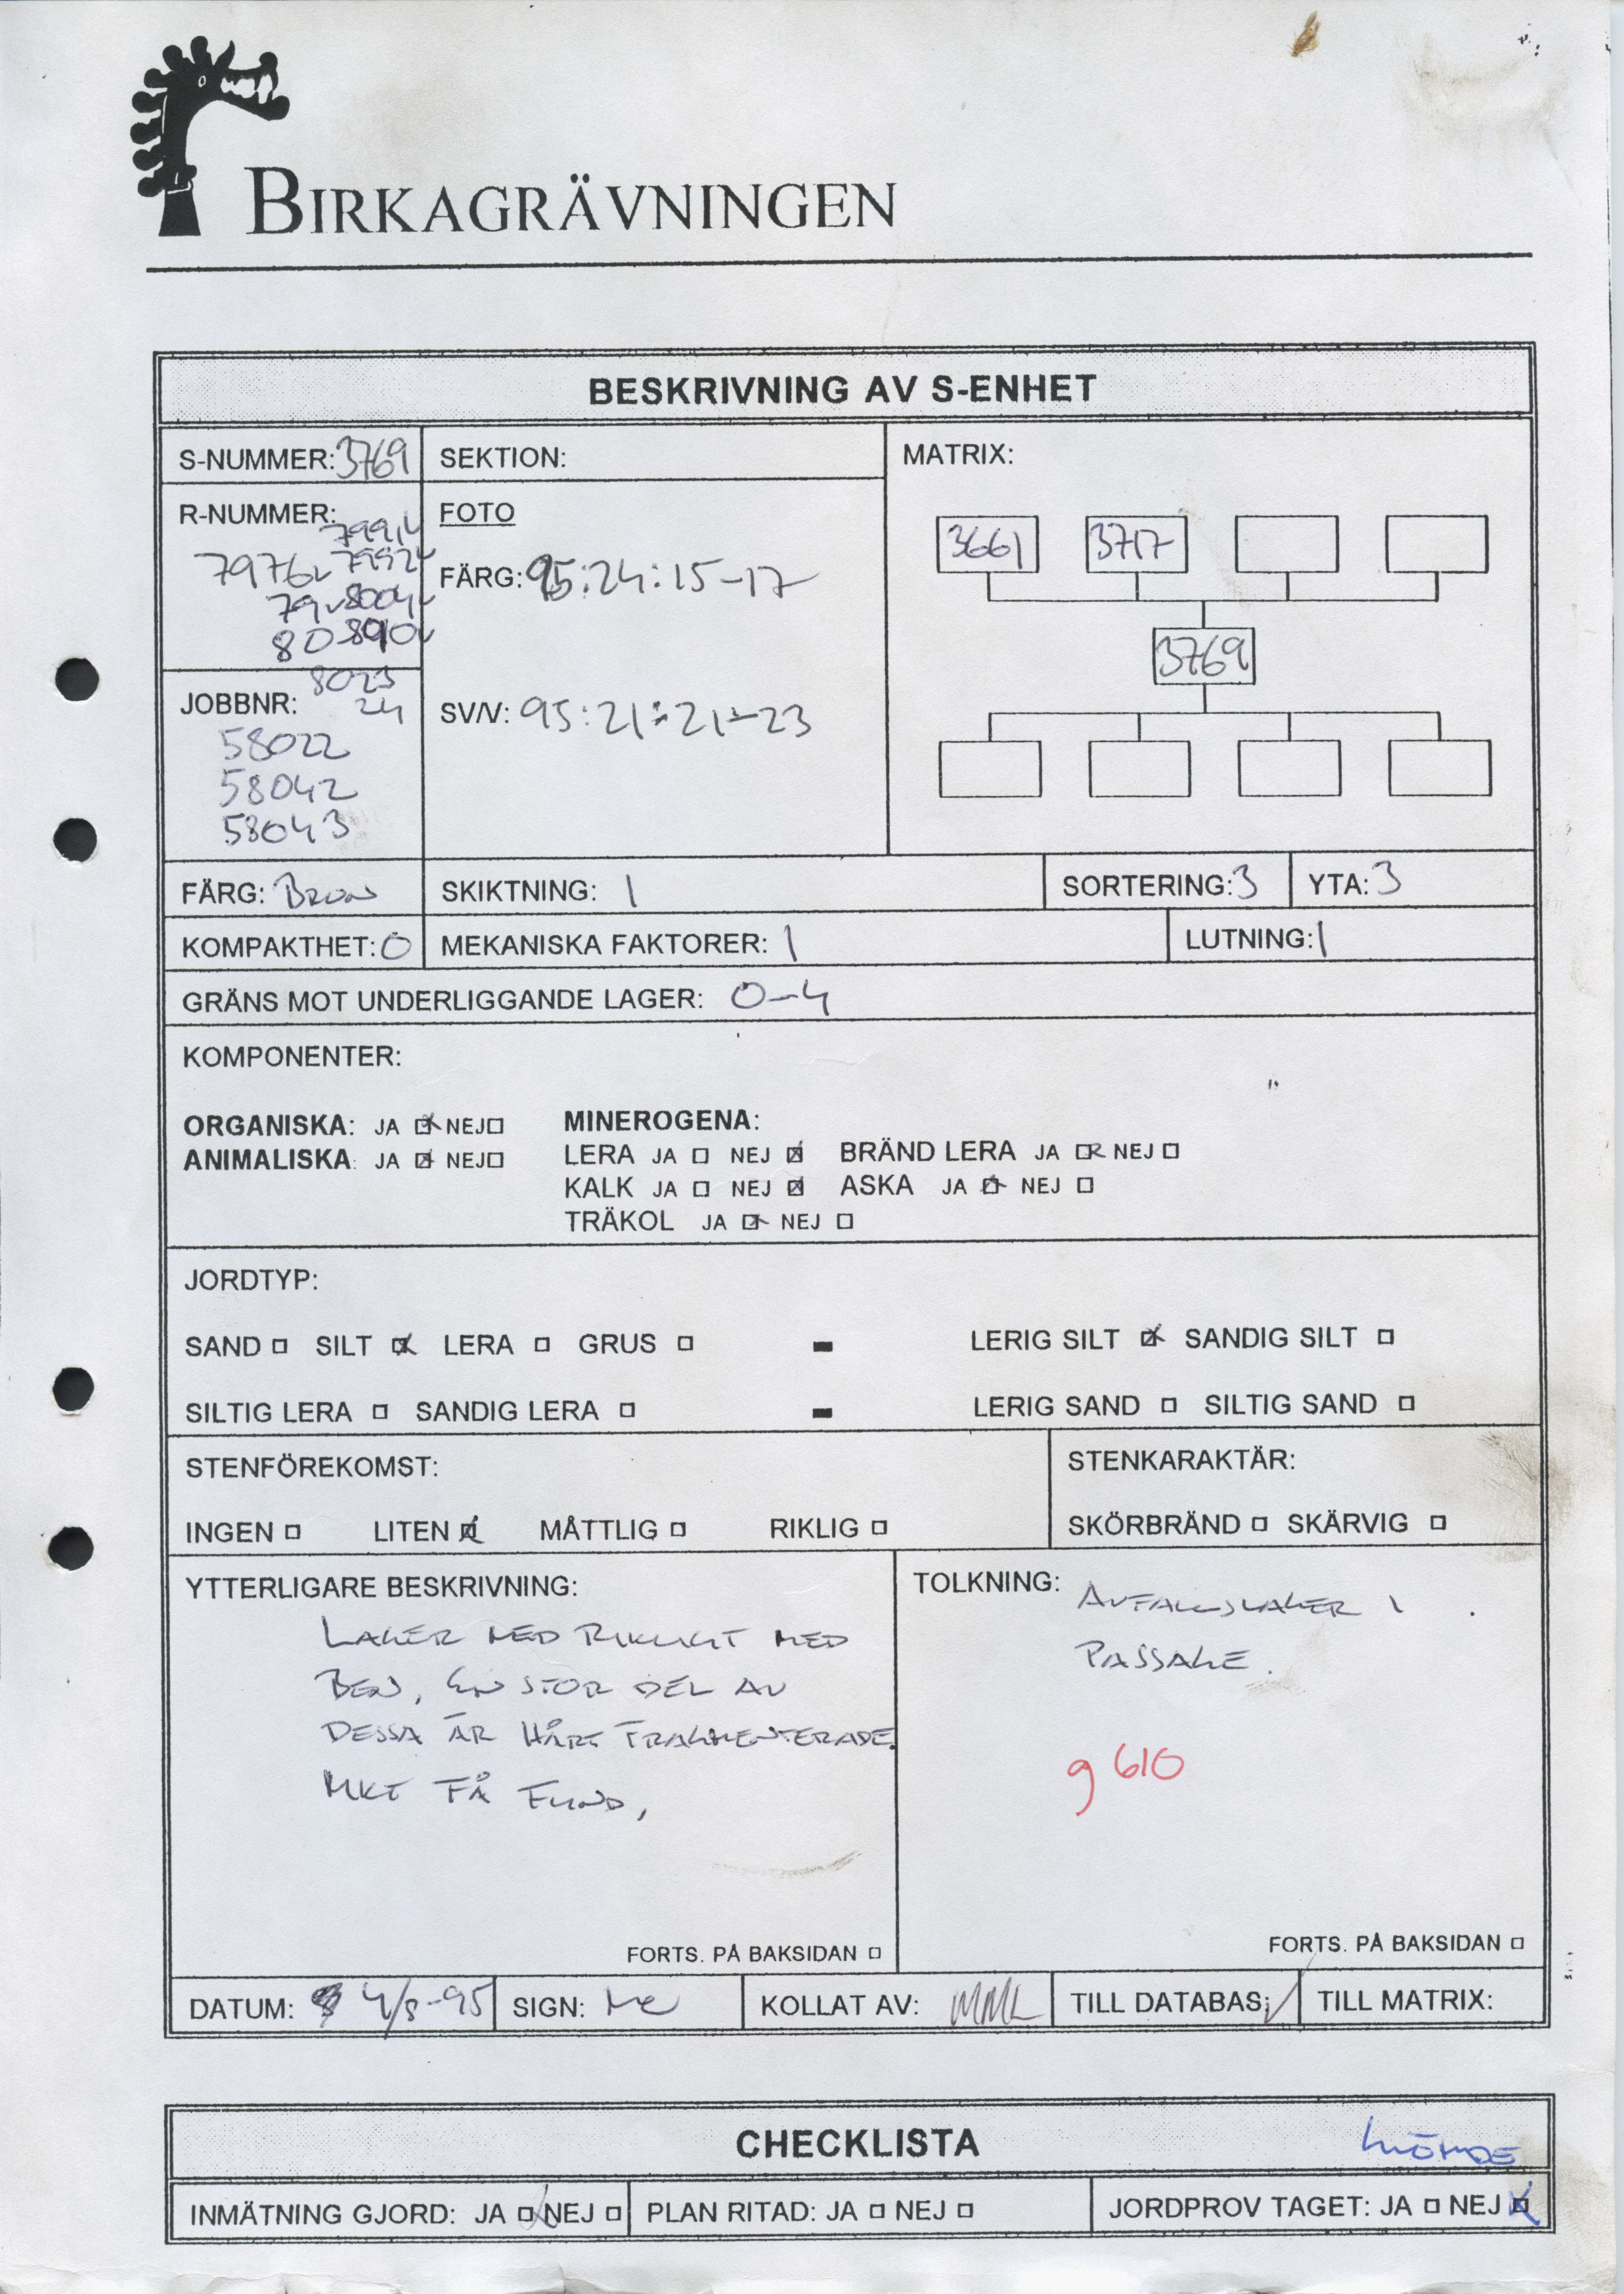 BIRKAGRÄVNINGEN
BESKRIVNING AV S-ENHET
S-NUMMER: 3769
SEKTION:
MATRIX:
R-NUMMER:
7991
7976 7992
79 8004
80
8023
24
FOTO
FÄRG: 95:24:15-17
SV/V: 95:21:21-23
3661 3717
3769
JOBBNR:
58022
58042
58043
FÄRG: BRUN
SKIKTNING: 1
SORTERING: 3
YTA: 3
KOMPAKTHET: 0
MEKANISKA FAKTORER: 1
LUTNING: 1
GRÄNS MOT UNDERLIGGANDE LAGER: 0-4
KOMPONENTER:
ORGANISKA: JA NEJ
ANIMALISKA: JA NEJ
MINEROGENA:
LERA JA NEJ BRÄND LERA JA NEJ
KALK JA NEJ ASKA JA NEJ
TRÄKOL JA NEJ
JORDTYP:
SAND SILT LERA GRUS - LERIG SILT SANDIG SILT
SILTIG LERA SANDIG LERA - LERIG SAND SILTIG SAND
STENFÖREKOMST:
INGEN LITEN MÅTTLIG RIKLIG
STENKARAKTÄR:
SKÖRBRÄND SKÄRVIG
YTTERLIGARE BESKRIVNING:
LAGER MED RIKLIGT MED
BEN, EN STOR DEL AV
DESSA ÄR HÅRT FRAGMENTERADE.
MKT FÅ FYND,
FORTS. PÅ BAKSIDAN
TOLKNING: AVFALLSLAGER I
PASSAGE.
g 610
FORTS. PÅ BAKSIDAN
DATUM: 4/8-95
SIGN:
KOLLAT AV: MML
TILL DATABAS:
TILL MATRIX:
CHECKLISTA
INMÄTNING GJORD: JA NEJ
PLAN RITAD: JA NEJ
JORDPROV TAGET: JA NEJ